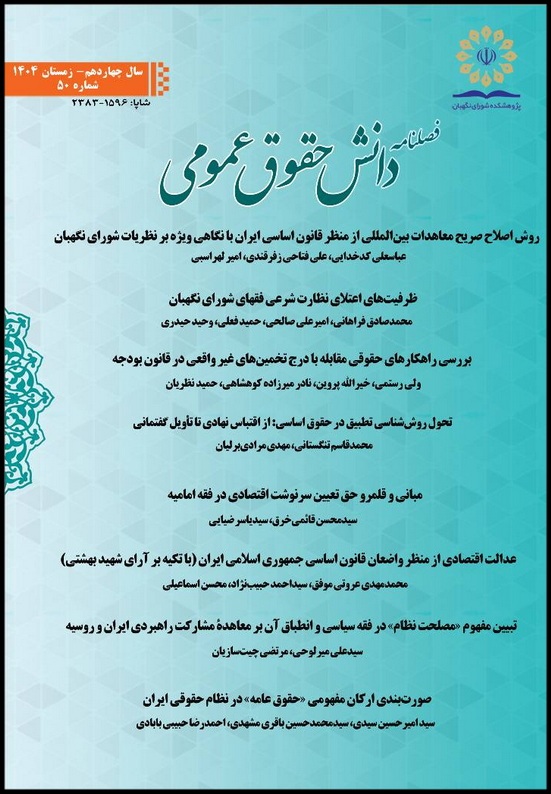 سال چهاردهم- زمستان ۱۴۰۴
شماره ۵۰
شاپا: ۱۵۹۶-۲۳۸۳
پژوهشکده شورای نگهبان
فصلنامه
دانش حقوق عمومی
روش اصلاح صریح معاهدات بین‌المللی از منظر قانون اساسی ایران با نگاهی ویژه بر نظریات شورای نگهبان
عباسعلی کدخدایی، علی فتاحی زفرقندی، امیر لهراسبی
ظرفیت‌های اعتلای نظارت شرعی فقهای شورای نگهبان
محمدصادق فراهانی، امیرعلی صالحی، حمید فعلی، وحید حیدری
بررسی راهکارهای حقوقی مقابله با درج تخمین‌های غیر واقعی در قانون بودجه
ولی رستمی، خیرالله پروین، نادر میرزاده کوهشاهی، حمید نظریان
تحول روش‌شناسی تطبیق در حقوق اساسی: از اقتباس نهادی تا تأویل گفتمانی
محمدقاسم تنگستانی، مهدی مرادی‌برلیان
مبانی و قلمرو حق تعیین سرنوشت اقتصادی در فقه امامیه
سیدمحسن قائمی‌خرق، سیدیاسر ضیایی
عدالت اقتصادی از منظر واضعان قانون اساسی جمهوری اسلامی ایران (با تکیه بر آرای شهید بهشتی)
محمدمهدی عروتی موفق، سیداحمد حبیب‌نژاد، محسن اسماعیلی
تبیین مفهوم «مصلحت نظام» در فقه سیاسی و انطباق آن بر معاهدهٔ مشارکت راهبردی ایران و روسیه
سیدعلی میرلوحی، مرتضی چیت‌سازیان
صورت‌بندی ارکان مفهومی «حقوق عامه» در نظام حقوقی ایران
سید امیرحسین سیدی، سیدمحمدحسین باقری مشهدی، احمدرضا حبیبی بابادی